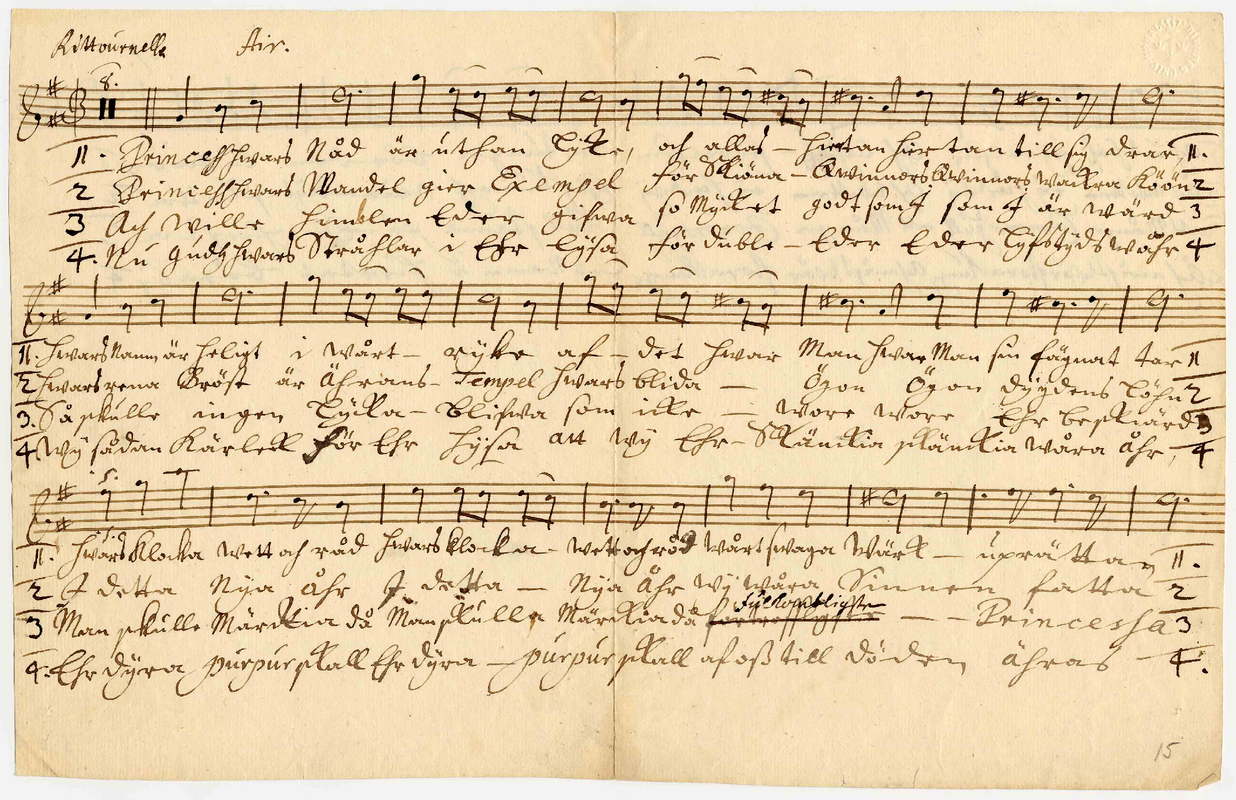 Rittournelle Air.
8.
1. Princess hwars Nåd är uthan Lÿke, och allas - hiertan hiertan till sig drar, 1.
2 Princess hwars Wandel gier Exempel för Skiöna - Qwinnors Qwinnors wackra Köön 2
3 Ach wille himblen Eder gifwa so Mÿcket godt som J som J är wärd 3
4. Nu gudz hwars Stråhlar i Ehr lÿsa förduble - Eder Eder lÿfstÿds wåhr 4
1. hwars Namn är heligt i wårt - rÿke af - det hwar Man hwar Man sin fägnat tar 1
2 hwars rena Bröst är Ährans - Tempel hwars blida - Ögon Ögon dÿÿdens Löhn 2
3. Så skulle ingen Lÿcka - blifwa som icke - wore wore Ehr beskiärd 3
4 wÿ sådan Kärleek för Ehr hÿsa att wÿ Ehr - Skänckia skänckia wåra åhr, 4
1. hwars Klocka wett och råd hwars klocka - wett och råd wårt swaga Wärk - uprätta 1.
2 J detta Nÿa Åhr J detta - Nÿa Åhr wÿ wåra Sinnen fatta 2
fulkombligste
3 Man skulle Märckia då Man skulle Märckia då - - Princessa 3
4. Ehr dÿra purpur skall Ehr dÿra - purpur skall af oss till döden ähras - 4.
15